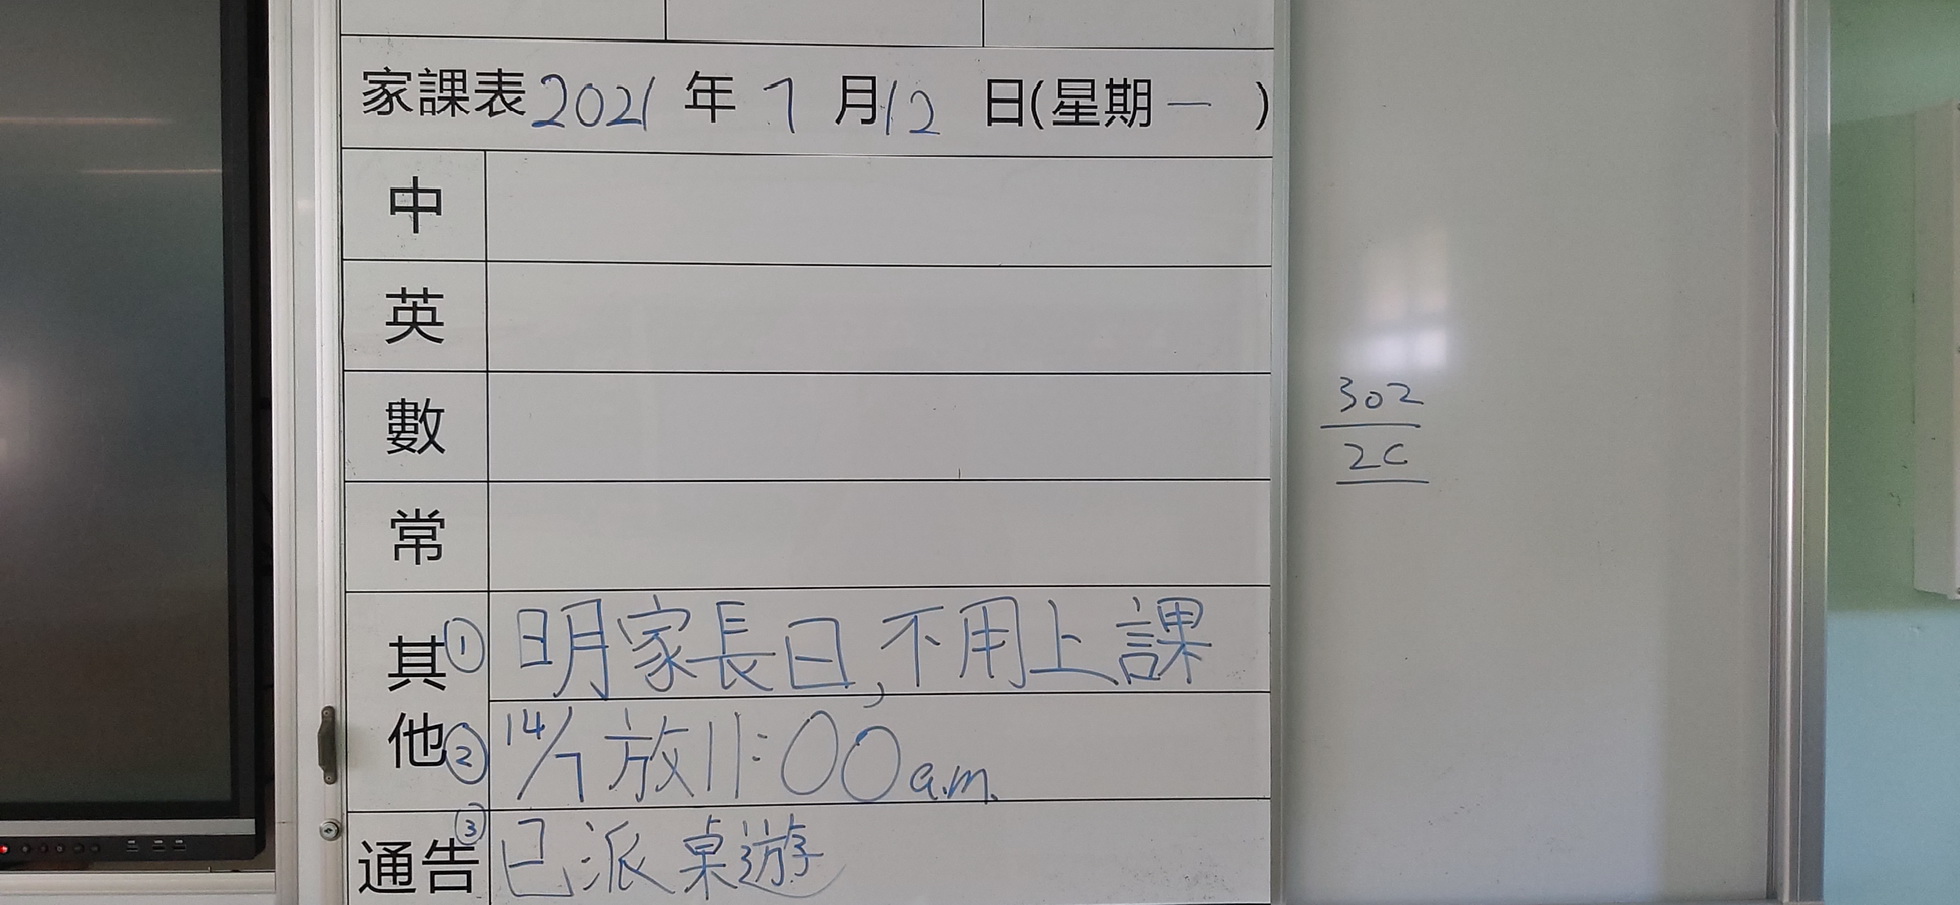 家課表 2021 年 7 月 12 日(星期一 )
中
英
數
常
其他
① 明家長日,不用上課
② 14/7 放11:00 a.m.
通告 ③ 已派桌遊
302
2C